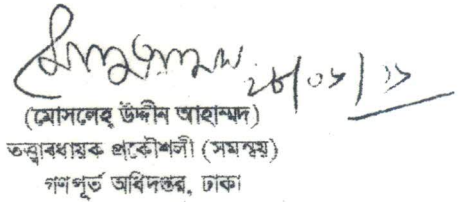 (মোসলেহ্ উদ্দীন আহাম্মদ)
তত্ত্বাবধায়ক প্রকৌশলী (সমন্বয়)
গণপূর্ত অধিদপ্তর, ঢাকা